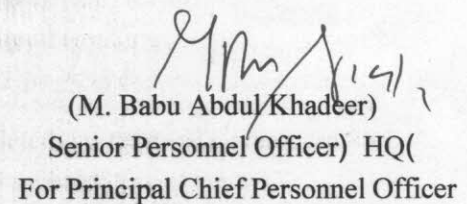 (M. Babu Abdul Khadeer)
Senior Personnel Officer) HQ(
For Principal Chief Personnel Officer